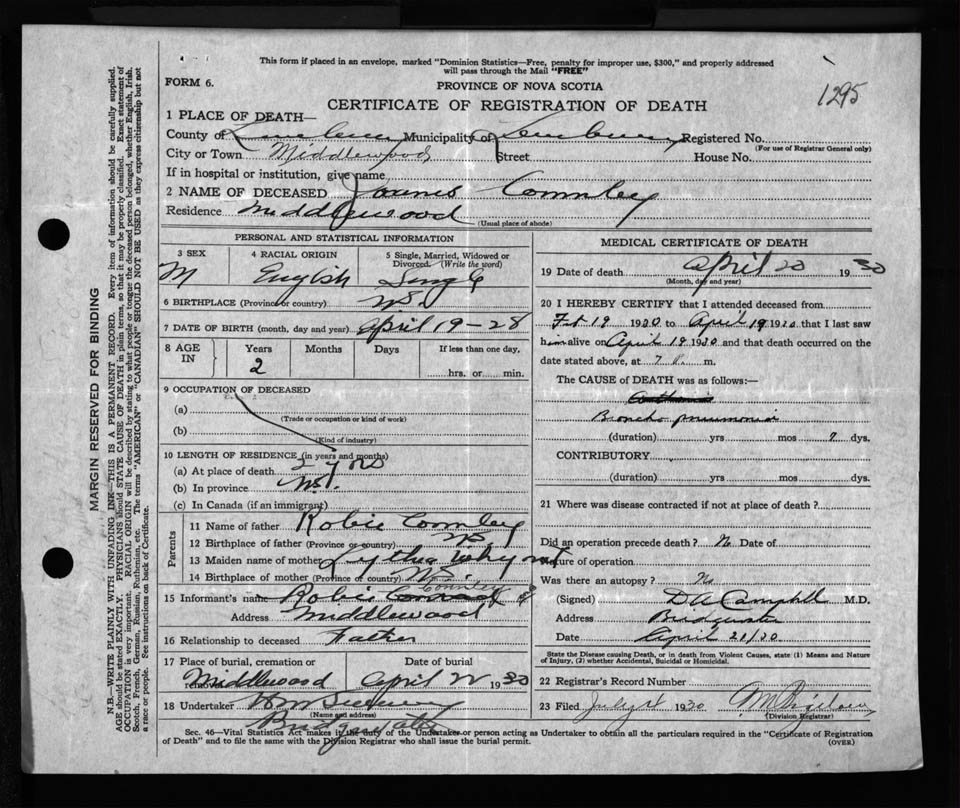 This form if placed in an envelope, marked "Dominion Statistics—Free, penalty for improper use, $300," and properly addressed
will pass through the Mail "FREE"
FORM 6.
PROVINCE OF NOVA SCOTIA
1295
CERTIFICATE OF REGISTRATION OF DEATH
1 PLACE OF DEATH—
County of Municipality of Registered No.
(For use of Registrar General only)
City or Town Middlewood Street House No.
If in hospital or institution, give name
2 NAME OF DECEASED
Residence Middlewood
(Usual place of abode)
PERSONAL AND STATISTICAL INFORMATION
3 SEX 4 RACIAL ORIGIN 5 Single, Married, Widowed or Divorced. (Write the word)
M English Single
6 BIRTHPLACE (Province or country) N.S.
7 DATE OF BIRTH (month, day and year) April 19-28
8 AGE IN Years Months Days If less than one day,
2 hrs. or min.
9 OCCUPATION OF DECEASED
(a)
(Trade or occupation or kind of work)
(b)
(Kind of industry)
10 LENGTH OF RESIDENCE (in years and months)
(a) At place of death 2 yrs
(b) In province N.S.
(c) In Canada (if an immigrant)
Parents
11 Name of father Robie
12 Birthplace of father (Province or country) N.S.
13 Maiden name of mother
14 Birthplace of mother (Province or country) N.S.
15 Informant's name Robie
Address Middlewood
16 Relationship to deceased Father
17 Place of burial, cremation or removal Date of burial
Middlewood April 22 1930
18 Undertaker
(Name and address)
MEDICAL CERTIFICATE OF DEATH
19 Date of death April 20 1930
(Month, day and year)
20 I HEREBY CERTIFY that I attended deceased from
Feb 19 1930 to April 19 1930 that I last saw
him alive on April 19 1930 and that death occurred on the
date stated above, at 7 m.
The CAUSE of DEATH was as follows:—
Broncho pneumonia
(duration) yrs mos 7 dys.
CONTRIBUTORY
(duration) yrs mos dys.
21 Where was disease contracted if not at place of death?
Did an operation precede death? No Date of
Nature of operation
Was there an autopsy? No
(Signed) D A Campbell M.D.
Address Bridgewater
Date April 21/30
State the Disease causing Death, or in death from Violent Causes, state (1) Means and Nature
of Injury, (2) whether Accidental, Suicidal or Homicidal.
22 Registrar's Record Number
23 Filed July 1st 1930
(Division Registrar)
Sec. 46—Vital Statistics Act makes it the duty of the Undertaker or person acting as Undertaker to obtain all the particulars required in the "Certificate of Registration
of Death" and to file the same with the Division Registrar who shall issue the burial permit.
(OVER)
MARGIN RESERVED FOR BINDING
N.B.—WRITE PLAINLY WITH UNFADING INK—THIS IS A PERMANENT RECORD. Every item of information should be carefully supplied.
AGE should be stated EXACTLY. PHYSICIANS should STATE CAUSE OF DEATH in plain terms, so that it may be properly classified. Exact statement of
OCCUPATION is very important. RACIAL ORIGIN will be described by stating to what people or tongue the deceased person belonged, whether English, Irish,
Scotch, French, German, Russian, Ruthenian, etc. The terms "AMERICAN" or "CANADIAN" SHOULD NOT BE USED as they express citizenship but not
a race or people. See instructions on back of Certificate.